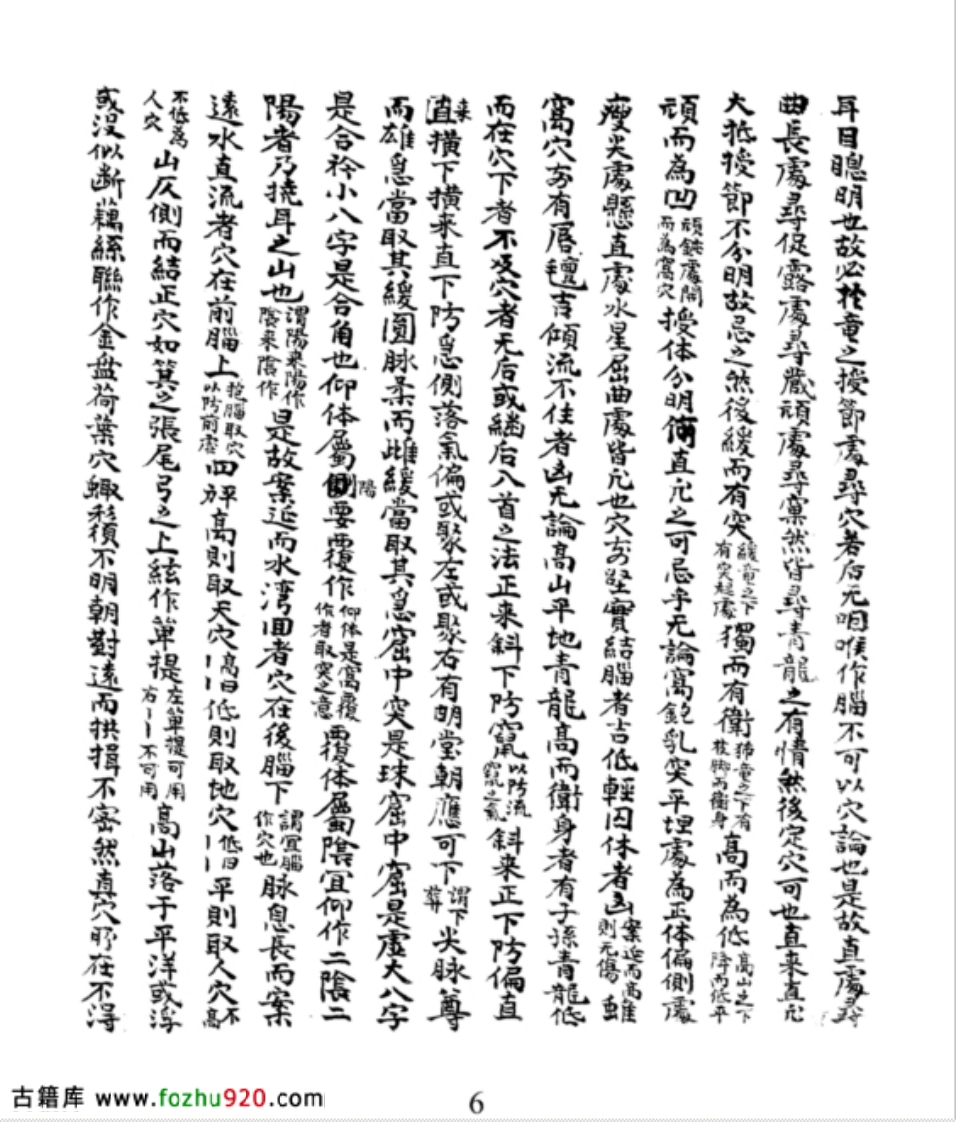 耳目聰明也故必於童之授節處尋穴若后无咽喉作腦不可以穴論也是故直處尋
曲長處尋促露處尋蔵頑處尋窠然皆尋青龍之有情然後定穴可也直来直
大抵授節不分明故忌之然後緩而有突緩童之下有突起處獨而有衛獨童之下有枝脚而衛身高而為低高山之下降而低平
頑而為凹頑鈍處開而為窩穴授体分明直之可忌乎无論窩鉗乳突平埋處為正体偏側處
瘦尖處懸直處水星屈曲處皆也穴前堅實結腦者吉低輕囚休者凶案近而高雖則无傷雖
窩穴前有唇氊吉傾流不住者凶无論高山平地青龍高而衛身者有子孫青龍低
而在穴下者不及穴者无后或繼后八首之法正来斜下防竄以防流竄之氣斜来正下防偏直
来直橫下橫来直下防急側落氣偏或聚左或聚右有明堂朝應可下謂下葬尖脉尊
而雄急當取其緩圓脉柔而雌緩當取其急窟中突是球窟中窟是虛大八字
是合衿小八字是合角也仰体屬陽要覆作仰体是窩覆作者取突之意覆体屬陰宜仰作二陰二
陽者乃撓耳之山也謂陽来陽作陰来陰作是故案近而水湾回者穴在後腦下謂宜腦作穴也脉息長而案
遠水直流者穴在前腦上挖腦取穴以防前虛四平高則取天穴高曰丨丨低則取地穴低曰丨丨平則取人穴不高
不低為人穴山仄側而結正穴如箕之張尾弓之上絃作單提左單提可用右丨丨不可用高山落于平洋或浮
或沒似断藕絲聯作金盘荷葉穴穢不明朝對遠而拱揖不密然真穴在不得
古籍库 www.fozhu920.com
6